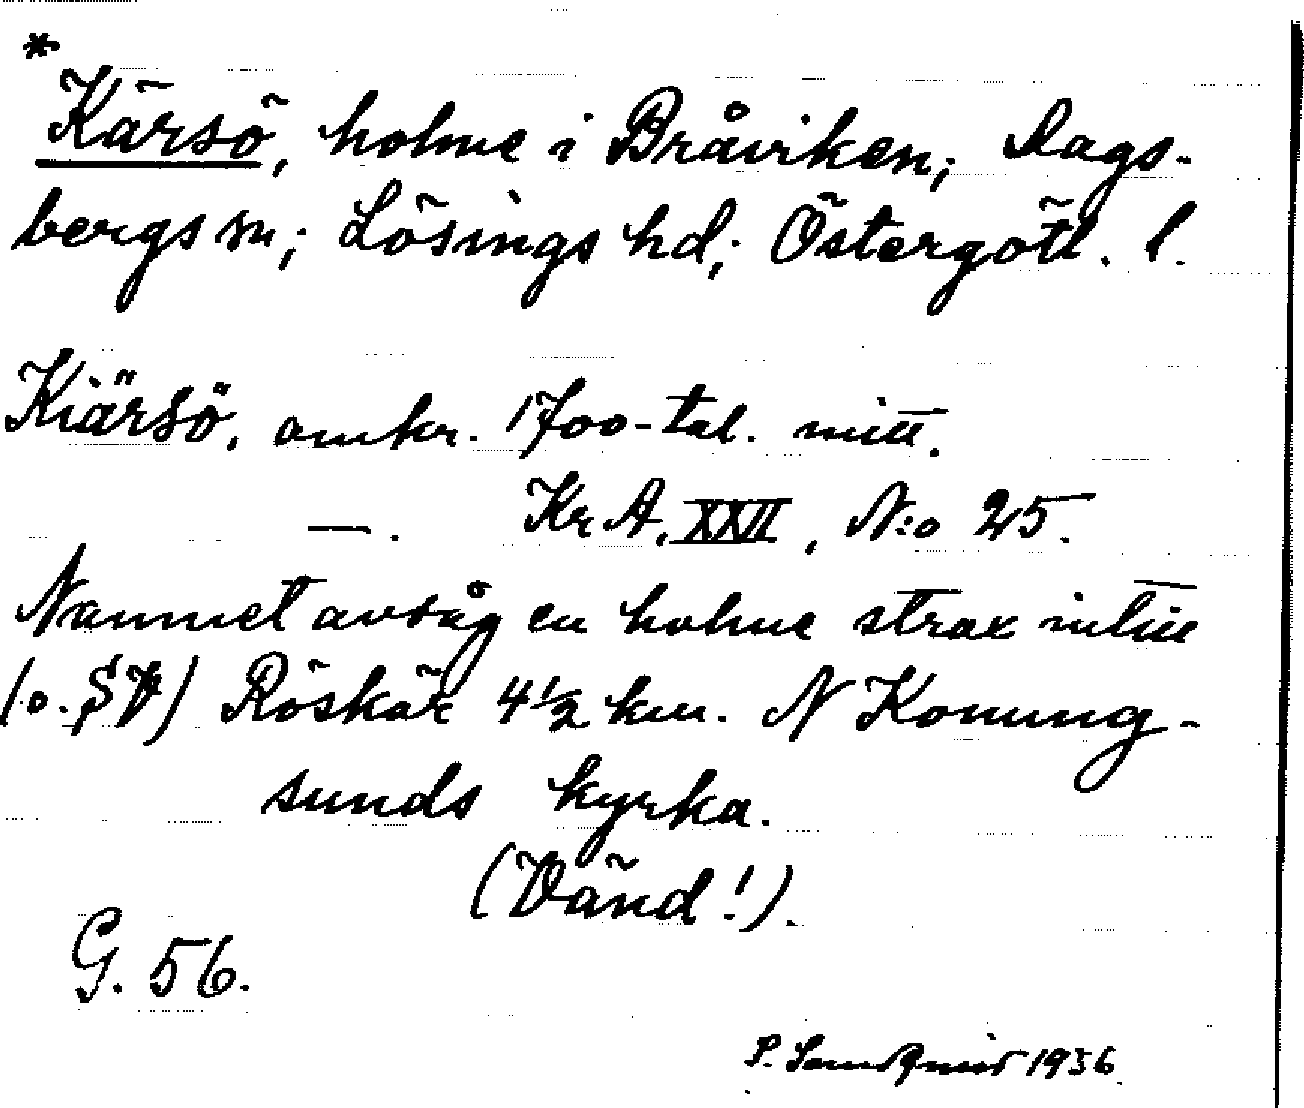 *
Kärsö, holme i Bråviken, Dags-
bergs sn; Lösings hd; Östergötl. l.
Kiärsö, omkr. 1700-tal. mitt.
—. Kr A, XXII, N:o 25.
Namnet avsåg en holme strax intill
(o. SV) Röskär 4 1/2 km. N Konung-
sunds kyrka.
(Vänd!).
G. 56.
P. Sandqvist 1936